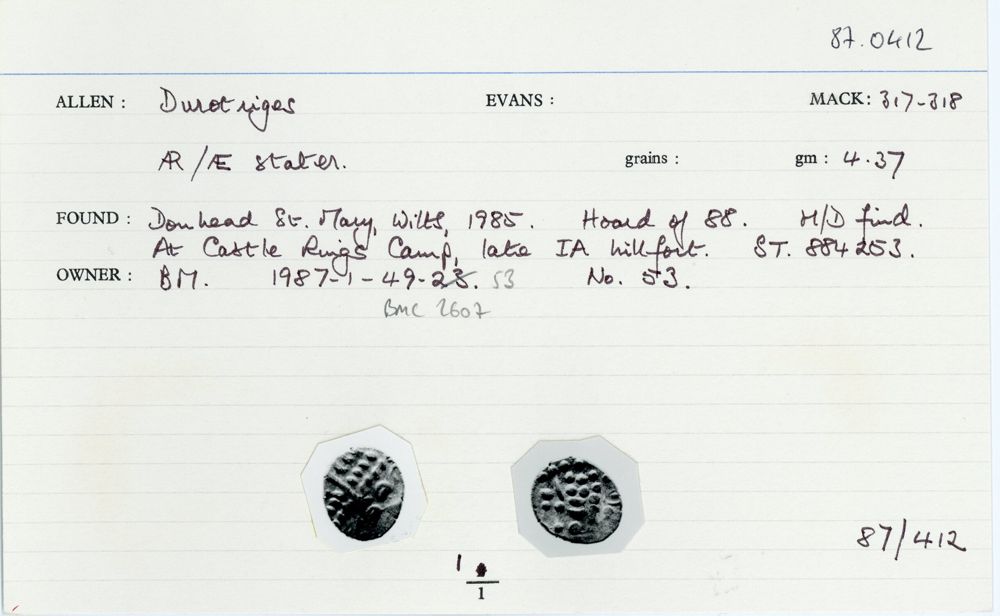 87.0412
ALLEN : Durotriges EVANS : MACK: 317-318
ÆR/Æ stater. grains : gm : 4.37
FOUND : Donhead St. Mary, Wilts, 1985. Hoard of 88. M/D find.
At Castle Rings Camp, late IA hillfort. ST. 884253.
OWNER : BM. 1987-1-49-28. 53 No. 53.
BMC 2607
87/412
1
1